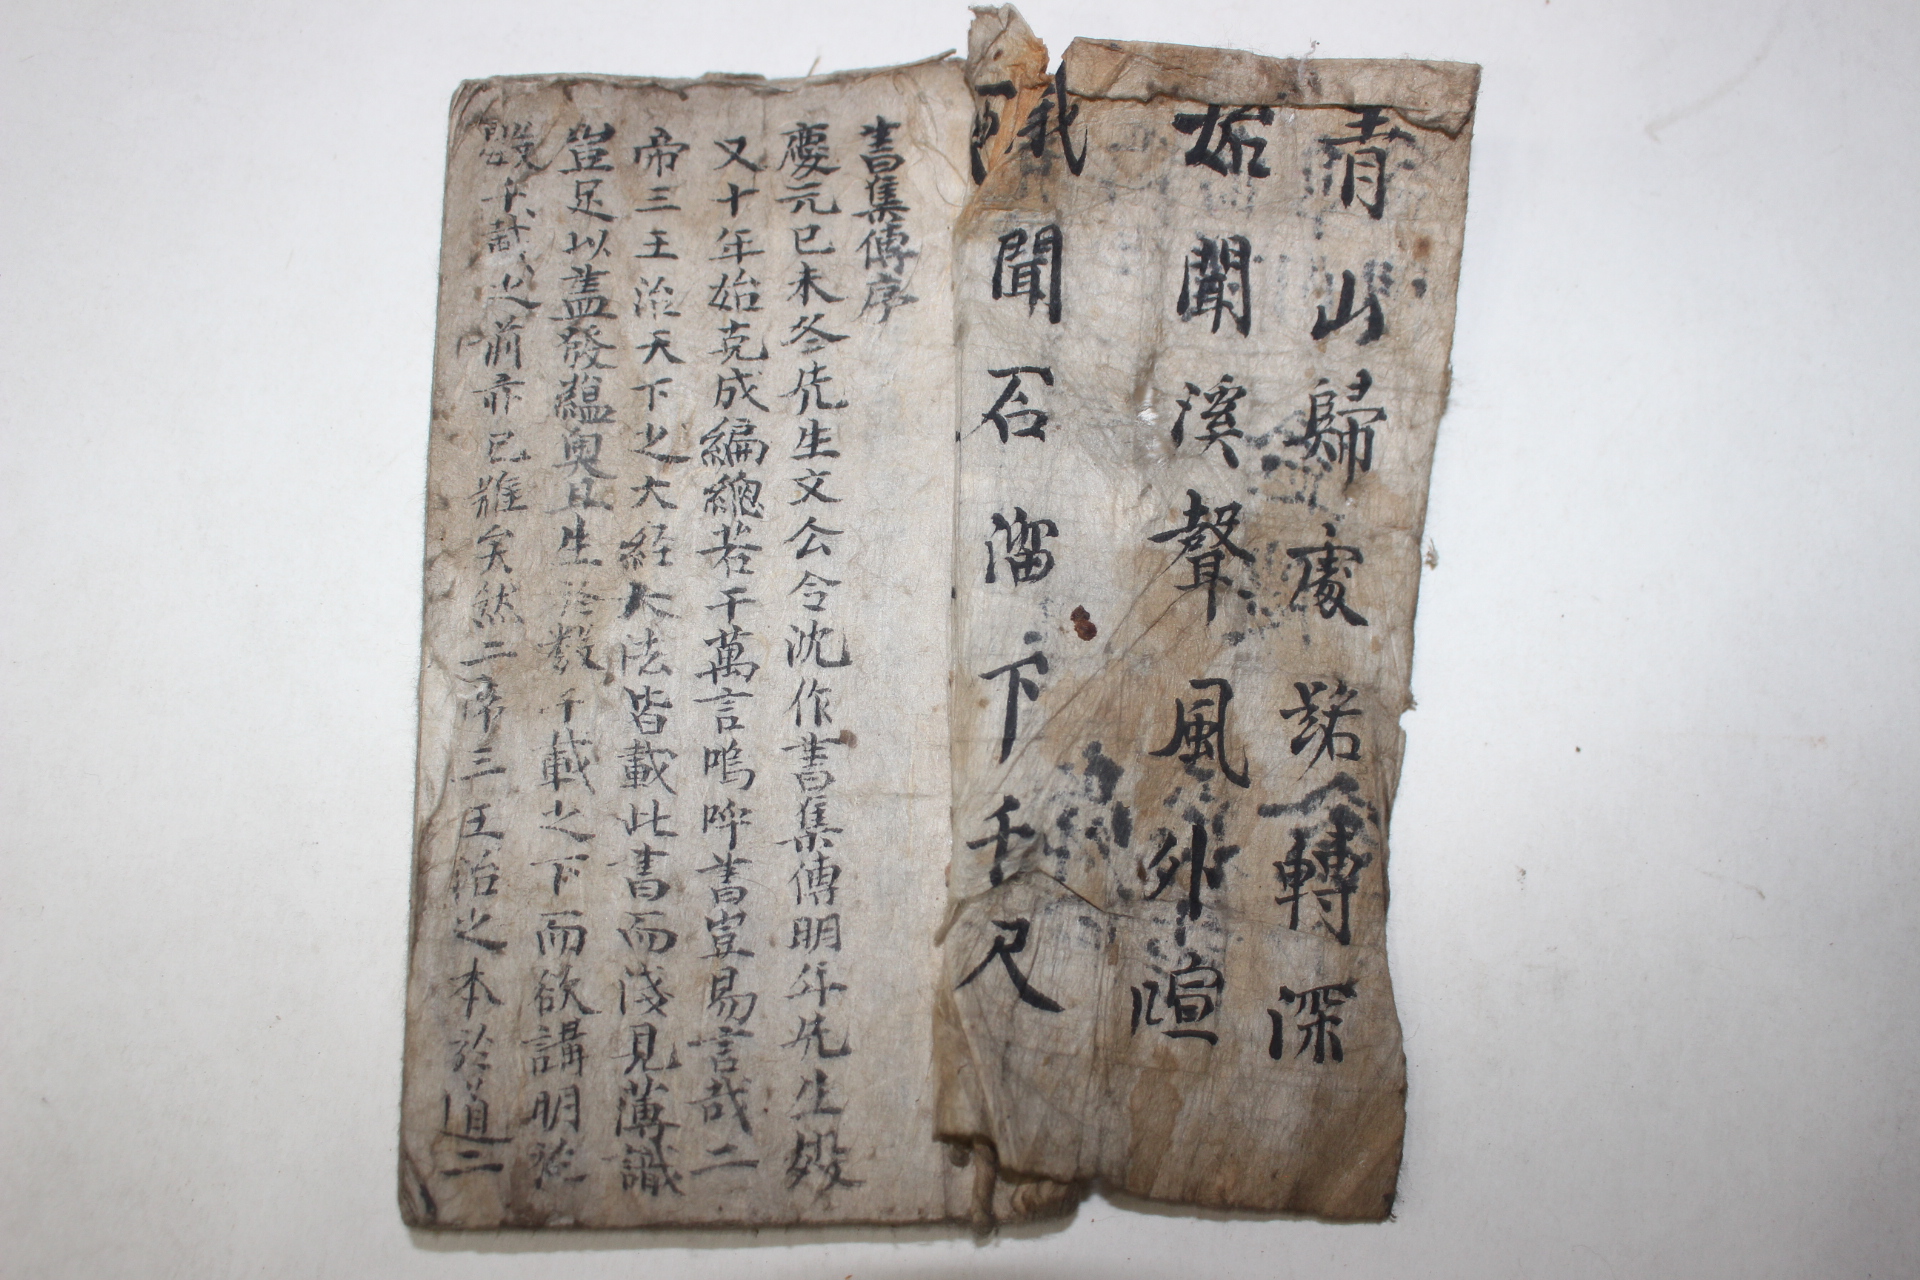 青山歸處語轉深
始聞溪聲風外喧
我
聞石溜下千尺
書集傳序
慶元已未冬先生文公令沈作書集傳明年先生歿
又十年始克成編緫若干萬言嗚呼書豈易言哉二
帝三王治天下之大經大法皆載此書而淺見薄識
豈足以盖發蘊奧且生於数千載之下而欲講明於
數千載之前亦已难矣然二帝三王治之本於道二